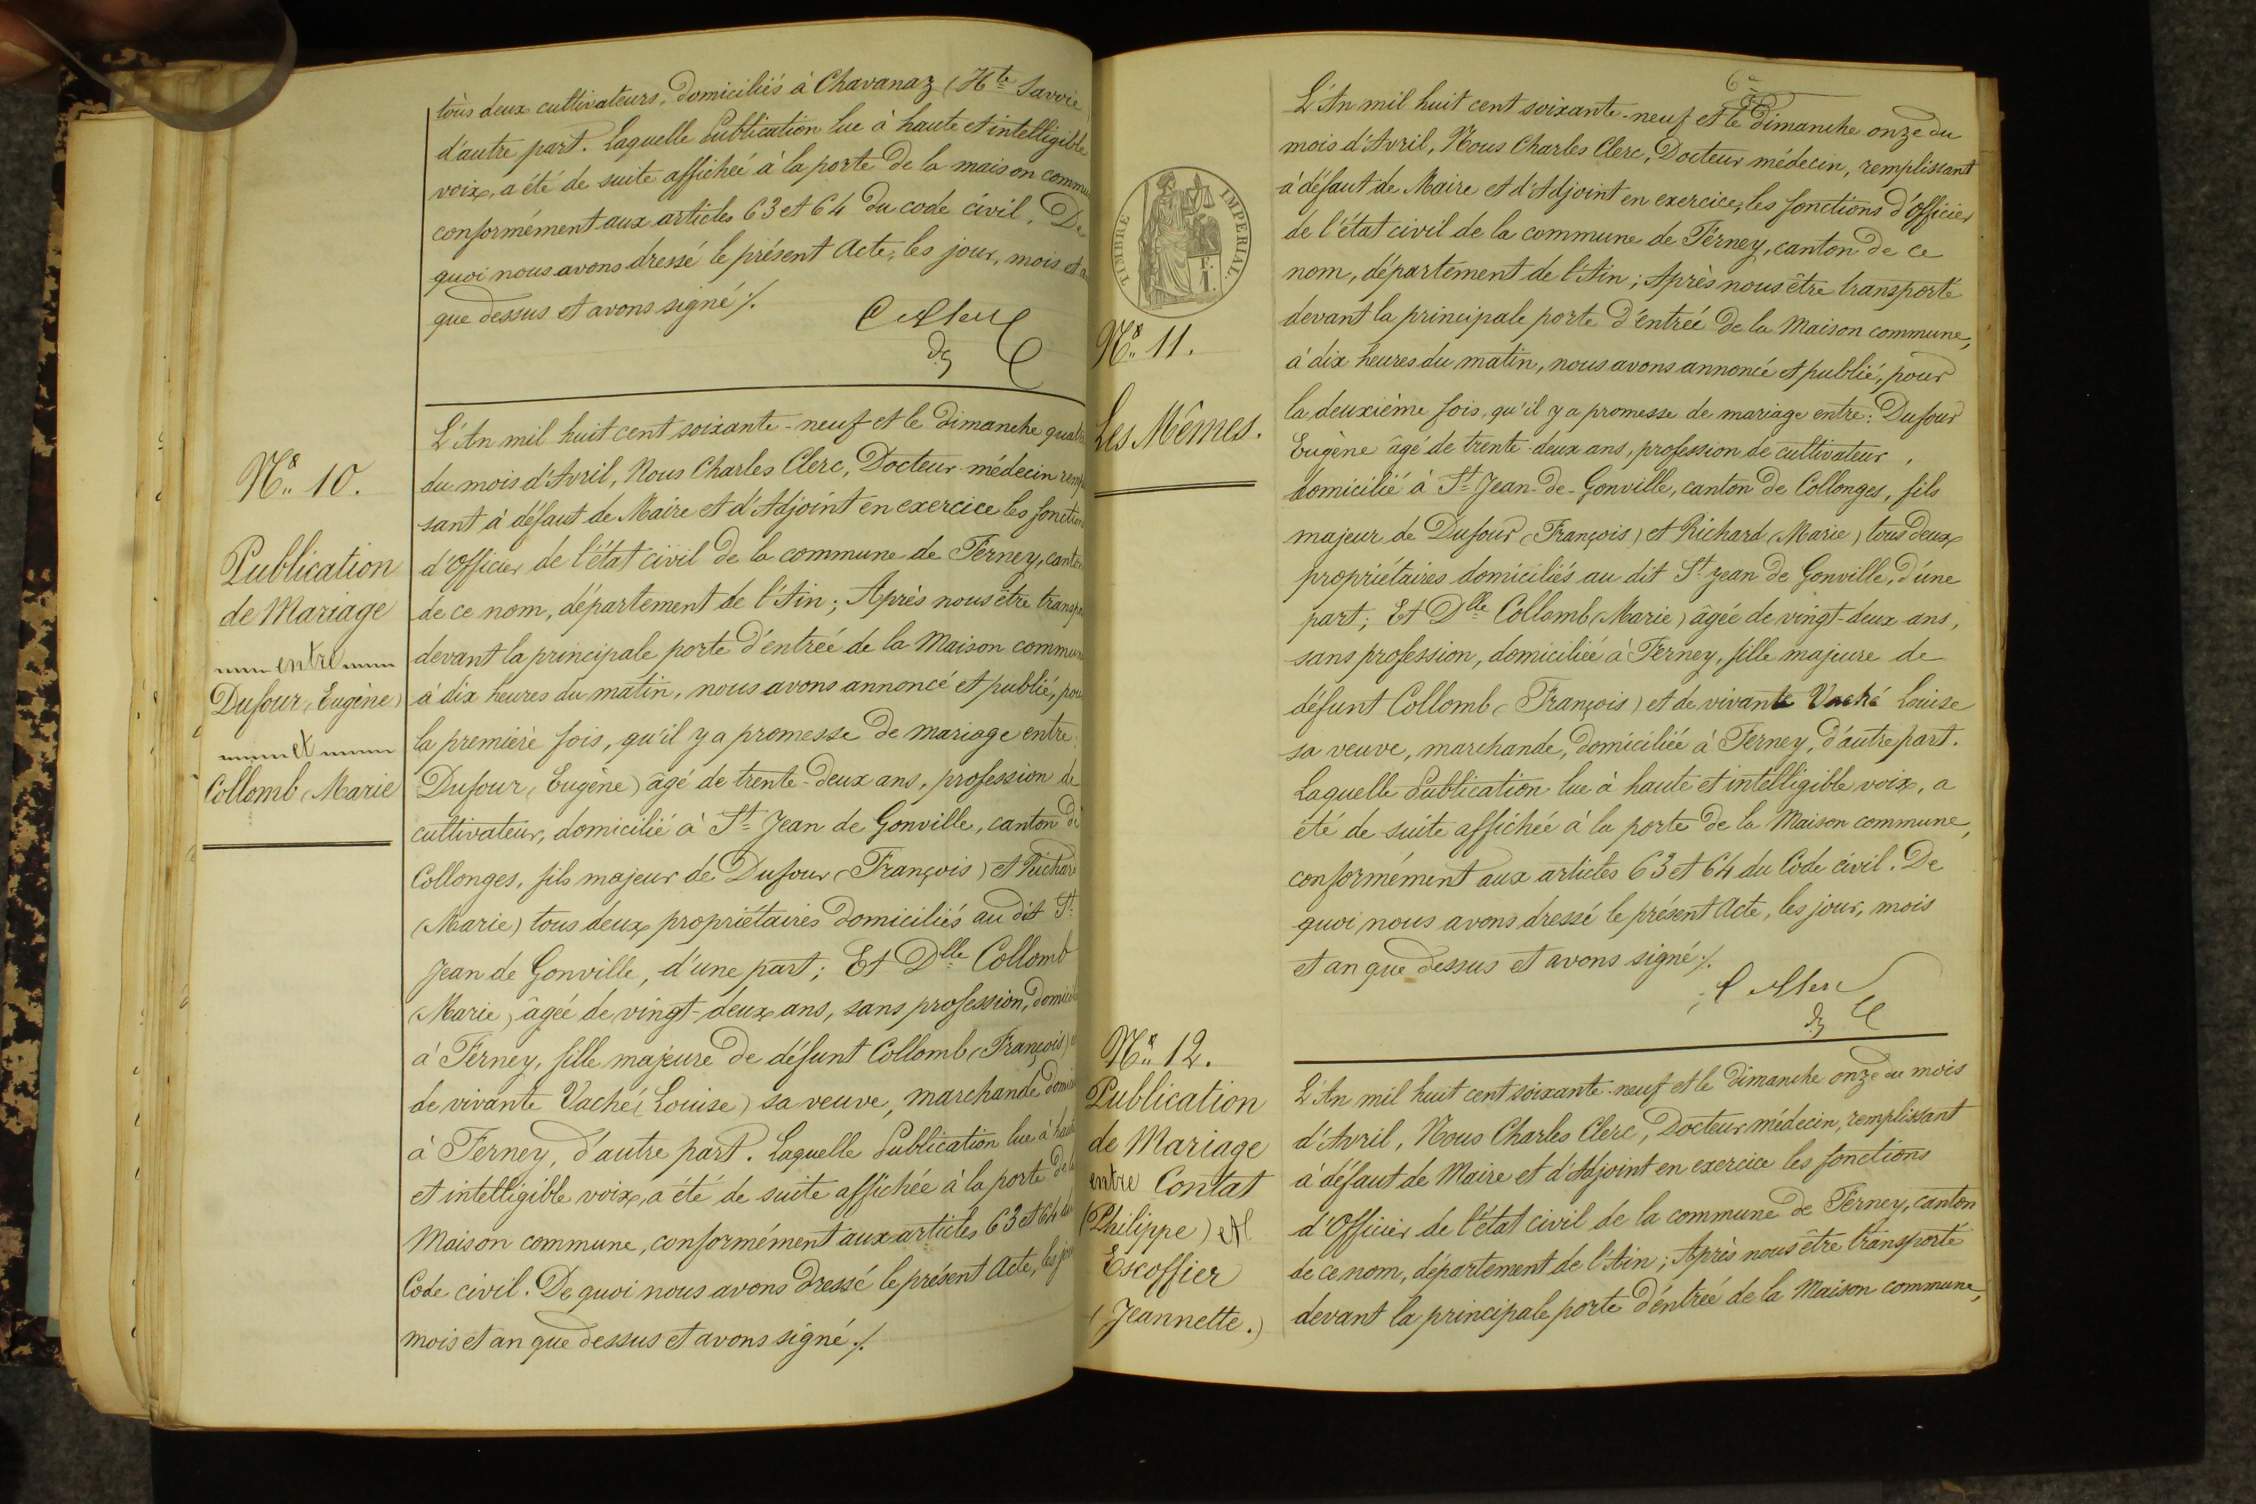 tous deux cultivateurs, domiciliés à Chavanaz (Hte Savoie
d'autre part. Laquelle Publication lue à haute et intelligible
voix, a été de suite affichée à la porte de la maison commu
conformément aux articles 63 et 64 du code civil. De
quoi nous avons dressé le présent Acte, les jour, mois et a
que dessus et avons signé ./.
N° 10.
Publication
de Mariage
entre
Dufour (Eugène)
et
Collomb (Marie
L'An mil huit cent soixante-neuf et le dimanche quat
du mois d'Avril, Nous Charles Clerc, Docteur médecin remp
sant à défaut de Maire et d'Adjoint en exercice les fonction
d'Officier de l'état civil de la commune de Ferney, canto
de ce nom, département de l'Ain; Après nous être transp
devant la principale porte d'entrée de la Maison commun
à dix heures du matin, nous avons annoncé et publié, pou
la première fois, qu'il y a promesse de mariage entre
Dufour (Eugène) âgé de trente-deux ans, profession de
cultivateur, domicilié à St Jean de Gonville, canton de
Collonges, fils majeur de Dufour (François) et Richard
(Marie) tous deux propriétaires domiciliés au dit St
Jean de Gonville, d'une part; Et Dlle Collomb
(Marie) âgée de vingt-deux ans, sans profession, domicili
à Ferney, fille majeure de défunt Collomb (François) e
de vivante Vaché (Louise) sa veuve, marchande domici
à Ferney, d'autre part. Laquelle Publication lue à haute
et intelligible voix, a été de suite affichée à la porte de la
Maison commune, conformément aux articles 63 et 64 du
Code civil. De quoi nous avons dressé le présent Acte, les jou
mois et an que dessus et avons signé ./.
6e
TIMBRE IMPERIAL.
N° 11.
Les Mêmes.
L'An mil huit cent soixante-neuf et le dimanche onze du
mois d'Avril, Nous Charles Clerc, Docteur médecin, remplissant
à défaut de Maire et d'Adjoint en exercice, les fonctions d'Officier
de l'état civil de la commune de Ferney, canton de ce
nom, département de l'Ain; Après nous être transporté
devant la principale porte d'entrée de la Maison commune,
à dix heures du matin, nous avons annoncé et publié, pour
la deuxième fois, qu'il y a promesse de mariage entre: Dufour
Eugène âgé de trente-deux ans, profession de cultivateur,
domicilié à St Jean-de-Gonville, canton de Collonges, fils
majeur de Dufour (François) et Richard (Marie) tous deux
propriétaires domiciliés au dit St Jean de Gonville, d'une
part; Et Dlle Collomb (Marie) âgée de vingt-deux ans,
sans profession, domiciliée à Ferney, fille majeure de
défunt Collomb (François) et de vivante Vaché Louise
sa veuve, marchande, domiciliée à Ferney, d'autre part.
Laquelle Publication lue à haute et intelligible voix, a
été de suite affichée à la porte de la Maison commune,
conformément aux articles 63 et 64 du Code civil. De
quoi nous avons dressé le présent Acte, les jour, mois
et an que dessus et avons signé ./.
N° 12.
Publication
de Mariage
entre Contat
(Philippe) et
Escoffier
(Jeannette.)
L'An mil huit cent soixante-neuf et le dimanche onze du mois
d'Avril, Nous Charles Clerc, Docteur médecin, remplissant
à défaut de Maire et d'Adjoint en exercice les fonctions
d'Officier de l'état civil de la commune de Ferney, canton
de ce nom, département de l'Ain; Après nous être transporté
devant la principale porte d'entrée de la Maison commune,